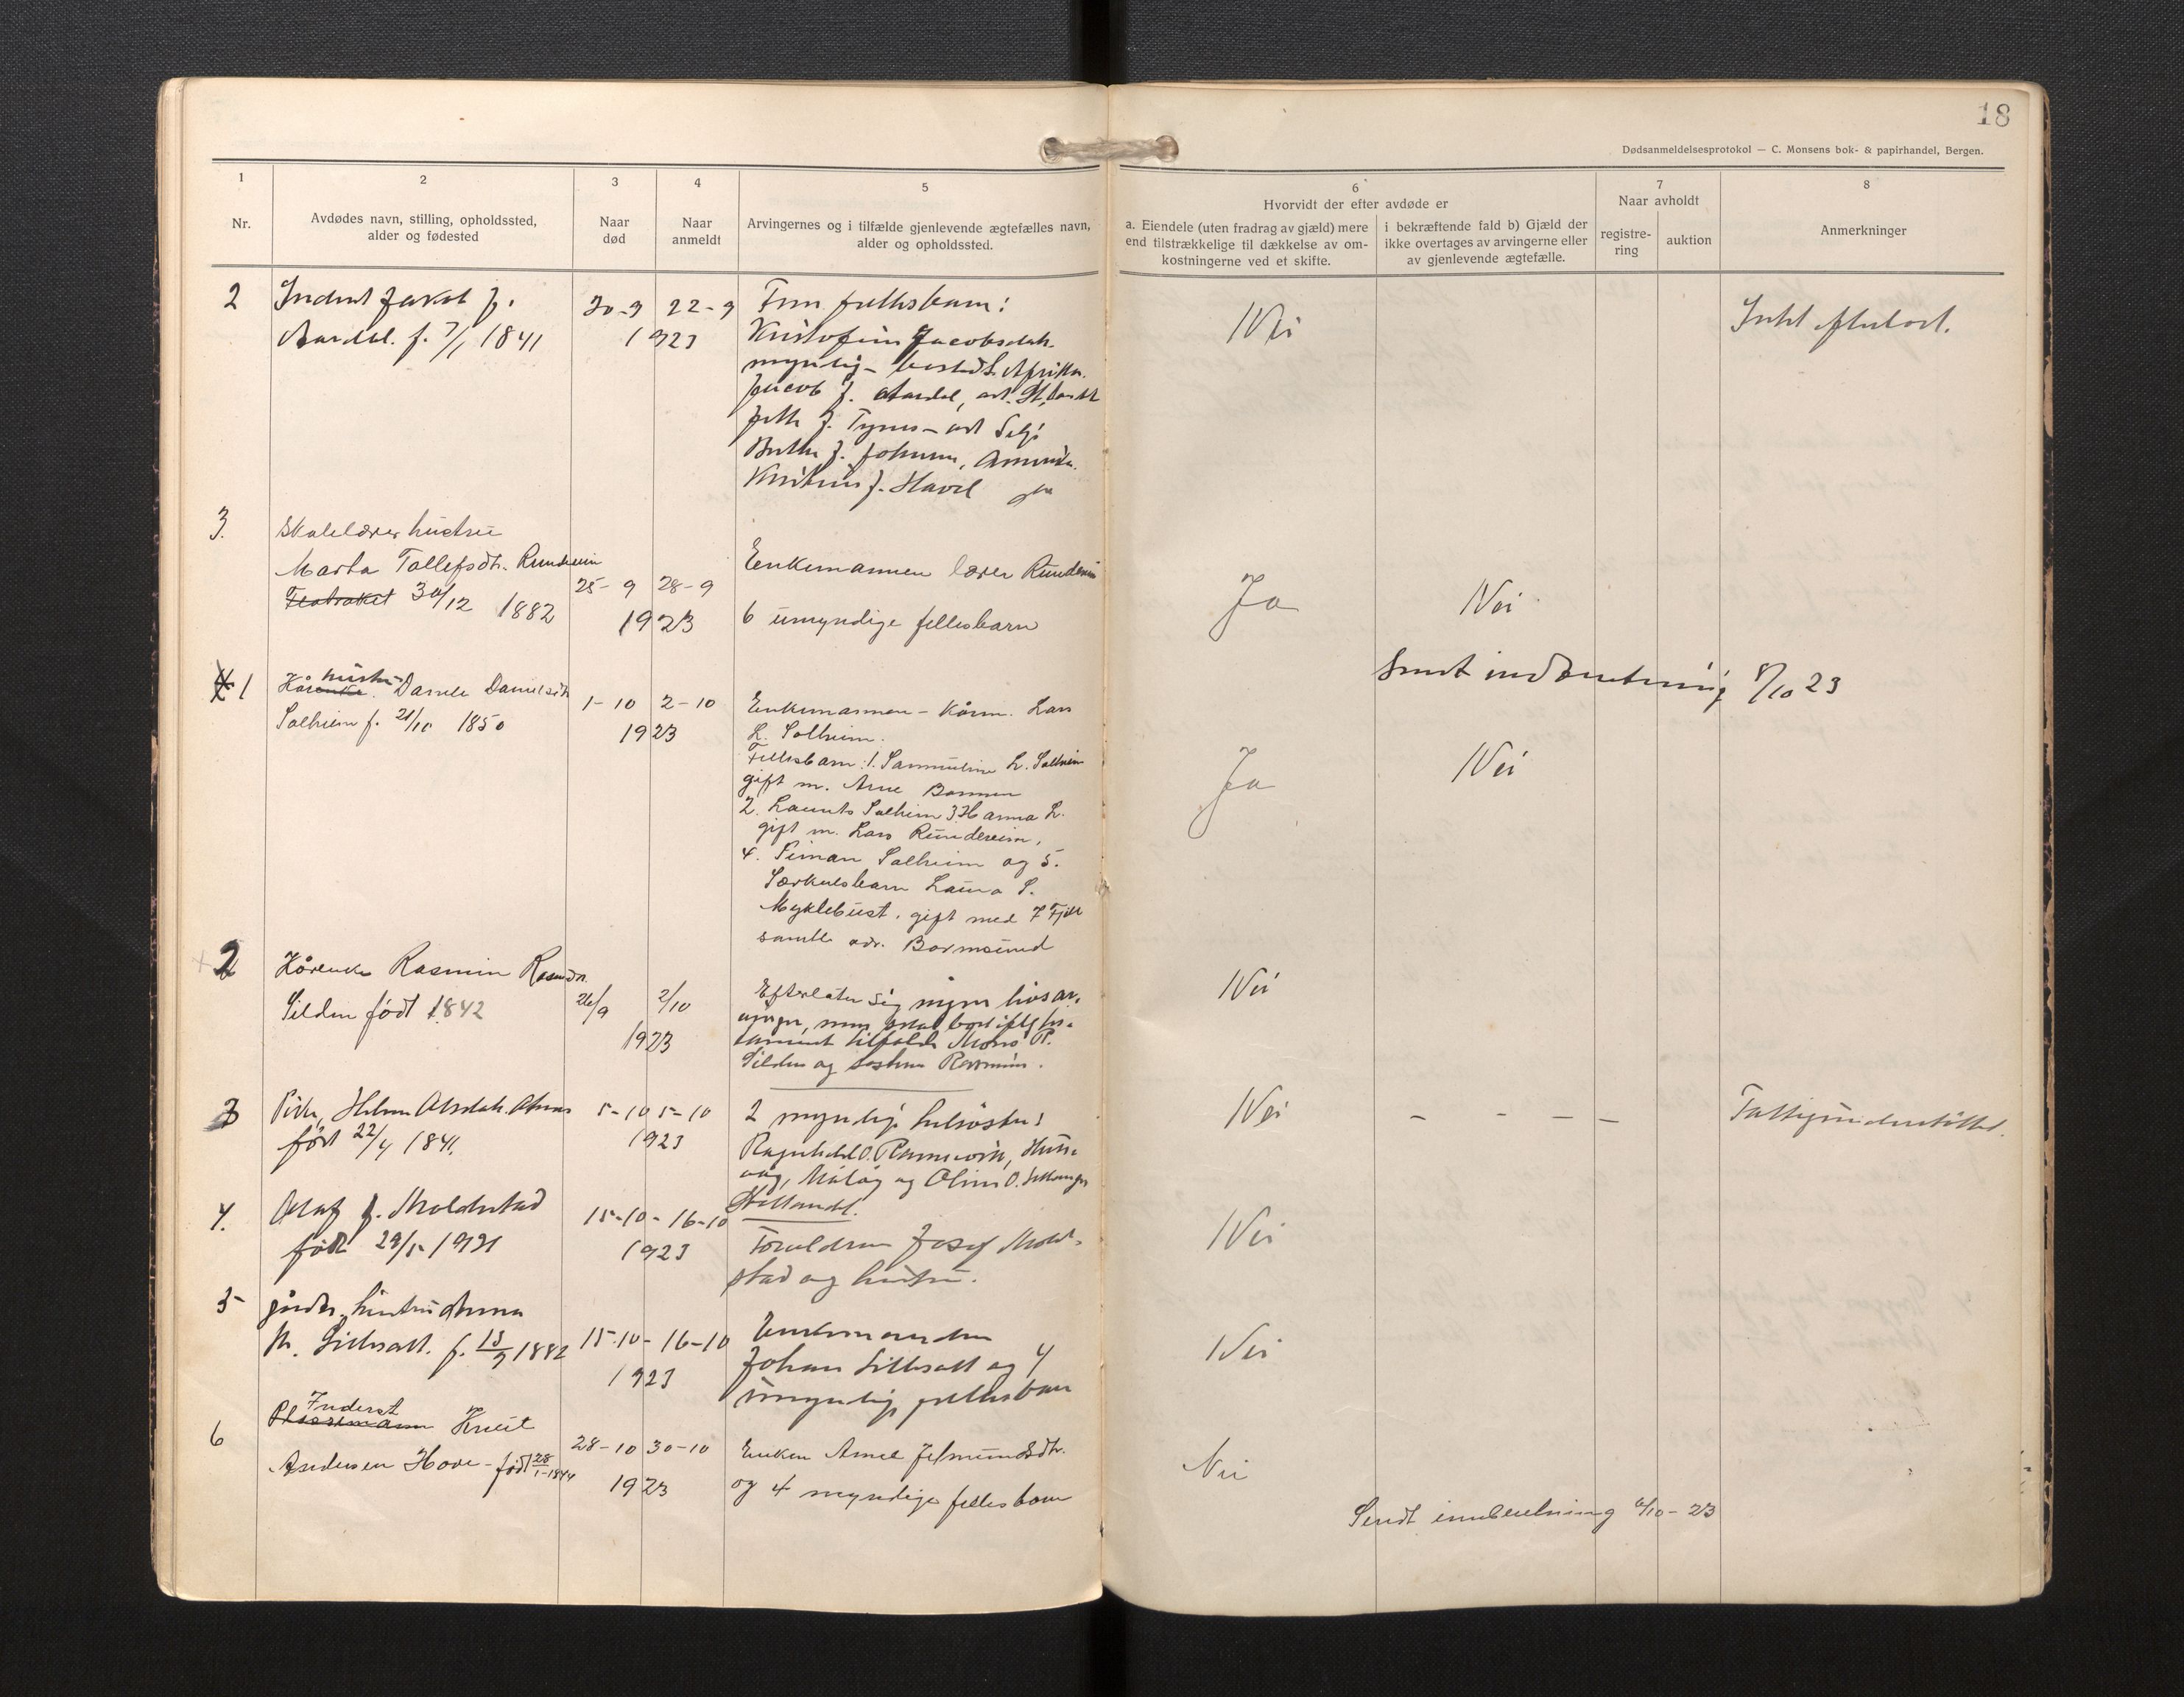 18
Dødsanmeldelsesprotokol — C. Monsens bok- & papirhandel, Bergen.
1
Nr.
2
Avdødes navn, stilling, opholdssted,
alder og fødested
3
Naar
død
4
Naar
anmeldt
5
Arvingernes og i tilfælde gjenlevende ægtefælles navn,
alder og opholdssted.
6
Hvorvidt der efter avdøde er
a. Eiendele (uten fradrag av gjæld) mere
end tilstrækkelige til dækkelse av om-
kostningerne ved et skifte.
i bekræftende fald b) Gjæld der
ikke overtages av arvingerne eller
av gjenlevende ægtefælle.
7
Naar avholdt
registre-
ring
auktion
8
Anmerkninger
2
Jakob J.
Aardal. f. 7/1 1841
20-9 22-9
1923
Fem fellesbarn:
Kristofine Jacobsdatr.
myndig - bosted S. Afrika.
Jacob J. Aardal, adr.
J. - adr Selje
J. Johnsen, Amerika.
J. Havel
Nei
Intet efterladt.
3.
Skolelærerhustru
Marta Tollefsdtr. Runderein
30/12 1882
25-9 28-9
1923
Enkemannen lærer Runderein
6 umyndige fellesbarn
Ja
Nei
Sendt indberetning 8/10 23
1
hustru
Danielsdtr
Solheim f. 21/10 1850
1-10 2-10
1923
Enkemannen - Kårm. Lars
L. Solheim.
Fellesbarn: 1. L. Solheim
gift m. Arne
2. Solheim 3. Hanna L.
gift m. Lars Runderein,
4. Simon Solheim og 5.
Særkulsbarn Laura S.
Myklebust. gift med
adr. Barmsund
Ja
Nei
2
Kårenke Rasmine Rasmdtr.
Silden født 1842
26/9 2/10
1923
Efterlater sig ingen livsar-
vinger, men skal boet ifølge tes-
tament tilfalde Mons R.
Silden og søstren Rasmine.
Nei
3
Pike, Helene Olsdatr.
født 22/4 1841.
5-10 5-10
1923
2 myndige helsøstre:
Ragnhild O. Ramsvik, Hus-
våg, Måløy og Oline O.
Nei - - - -
Fattigunderstøttet.
4.
Olaf J. Moldestad
født 29/5 1921
15-10 - 16-10
1923
Forældrene Josef Molde-
stad og hustru.
Nei
5
gårdbr. hustru Anna
M. f. 13/9 1882
15-10 - 16-10
1923
Enkemanden
Johan og 4
umyndige fellesbarn
Nei
6
Inderst
Knut
Andersen Hove - født 28/1-1844
28-10 30-10
1923
Enken
og 4 myndige fellesbarn
Nei
Sendt innberetning /10-23